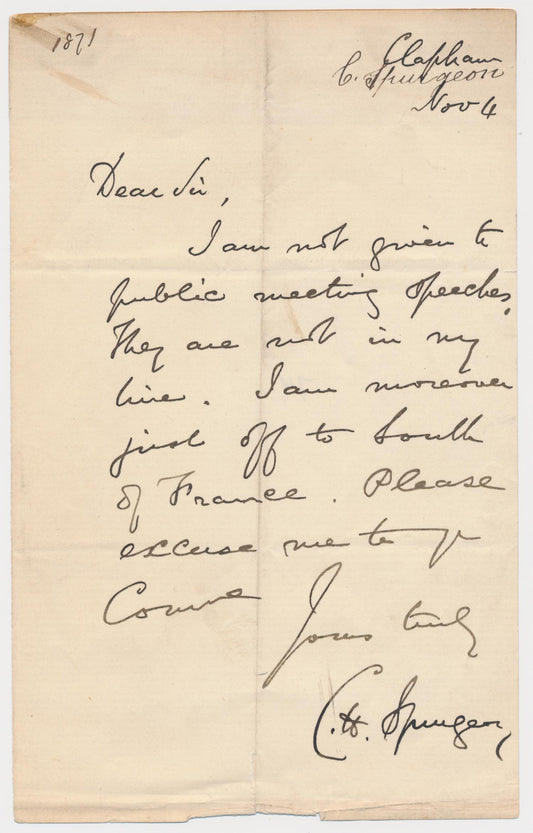 1871
Clapham
C. Spurgeon
Nov 4
Dear Sir,
I am not given to
public meeting speeches.
They are not in my
line. I am moreover
just off to South
of France. Please
excuse me to yr
Comee
Yours truly
C. H. Spurgeon